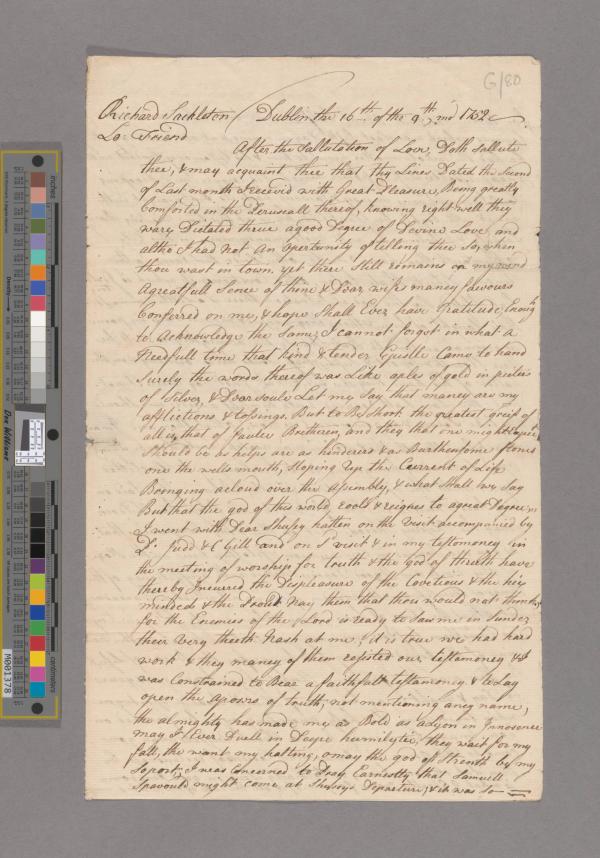 G/80
Richard Sackleton / Dublin the 16th of the 9th mo 1752
Lo: Friend
After the Sallutation of Love, Doth sallute
thee, & may acquaint thee that thy Lines Dated the Second
of Last month I receivd with Great Pleasure, Being greatly
Comforted in the Perusall thereof, knowing right well they
wary Dictated threue a good Degree of Devine Love, and
altho I had not an opertunity of telling thee so, when
thou wast in town, yet there Still remains on my mind
A greatfull Sence of thine & Dear wifes maney favours
Conferred on me, & hope Shall Ever have Gratitude Enough
to Acknowledge the Same; I cannot forget in what a
Needfull time that kind & tender Epistle Came to hand
Surely the words thereof was Like aples of gold in picters
of Silver, & Dear souls Let my Say that maney are my
afflictions & tosings, But to Be Short the greatest greif of
all is that of faulce Bretherin, and they that one might
Should be as helps are as hinderers & as Burthensome stones
one the wells mouth, stoping up the Current of Life
Bringing a cloud over the Assembly, & what Shall we Say
But that the god of this world, rools & reignes to a great Degree,
I went with Dear Shusy hatten on the visit accompanied by
D. Judd & E Gill and on S visit & in my testomoney in
the meeting of worship for truth & the god of threth have
thereby Incured the Displeasure of the Covetious & the hey
minded & the Proud Nay them that thou would not think,
for the Enemies of the Lord is ready to Saw me in Sunder
their very theeth Nash at me, it is true we had hard
work & they maney of them resisted our testomoney & I
was Constrained to Bear a faithfull testomoney & to Lay
open the aposers of truth, not mentioning aney name,
the almighty has made me as Bold as a Lyon in Innosence
may I Ever Dwell in Deepe humilytie, they wait for my
fall, the want my halting, o may the god of Strenth be my
Soport; I was Concerned to Pray Earnestly that Samuell
Spavould might come at Shusys Departure, & it was so
inches
centimeters
Don Williams
M001378